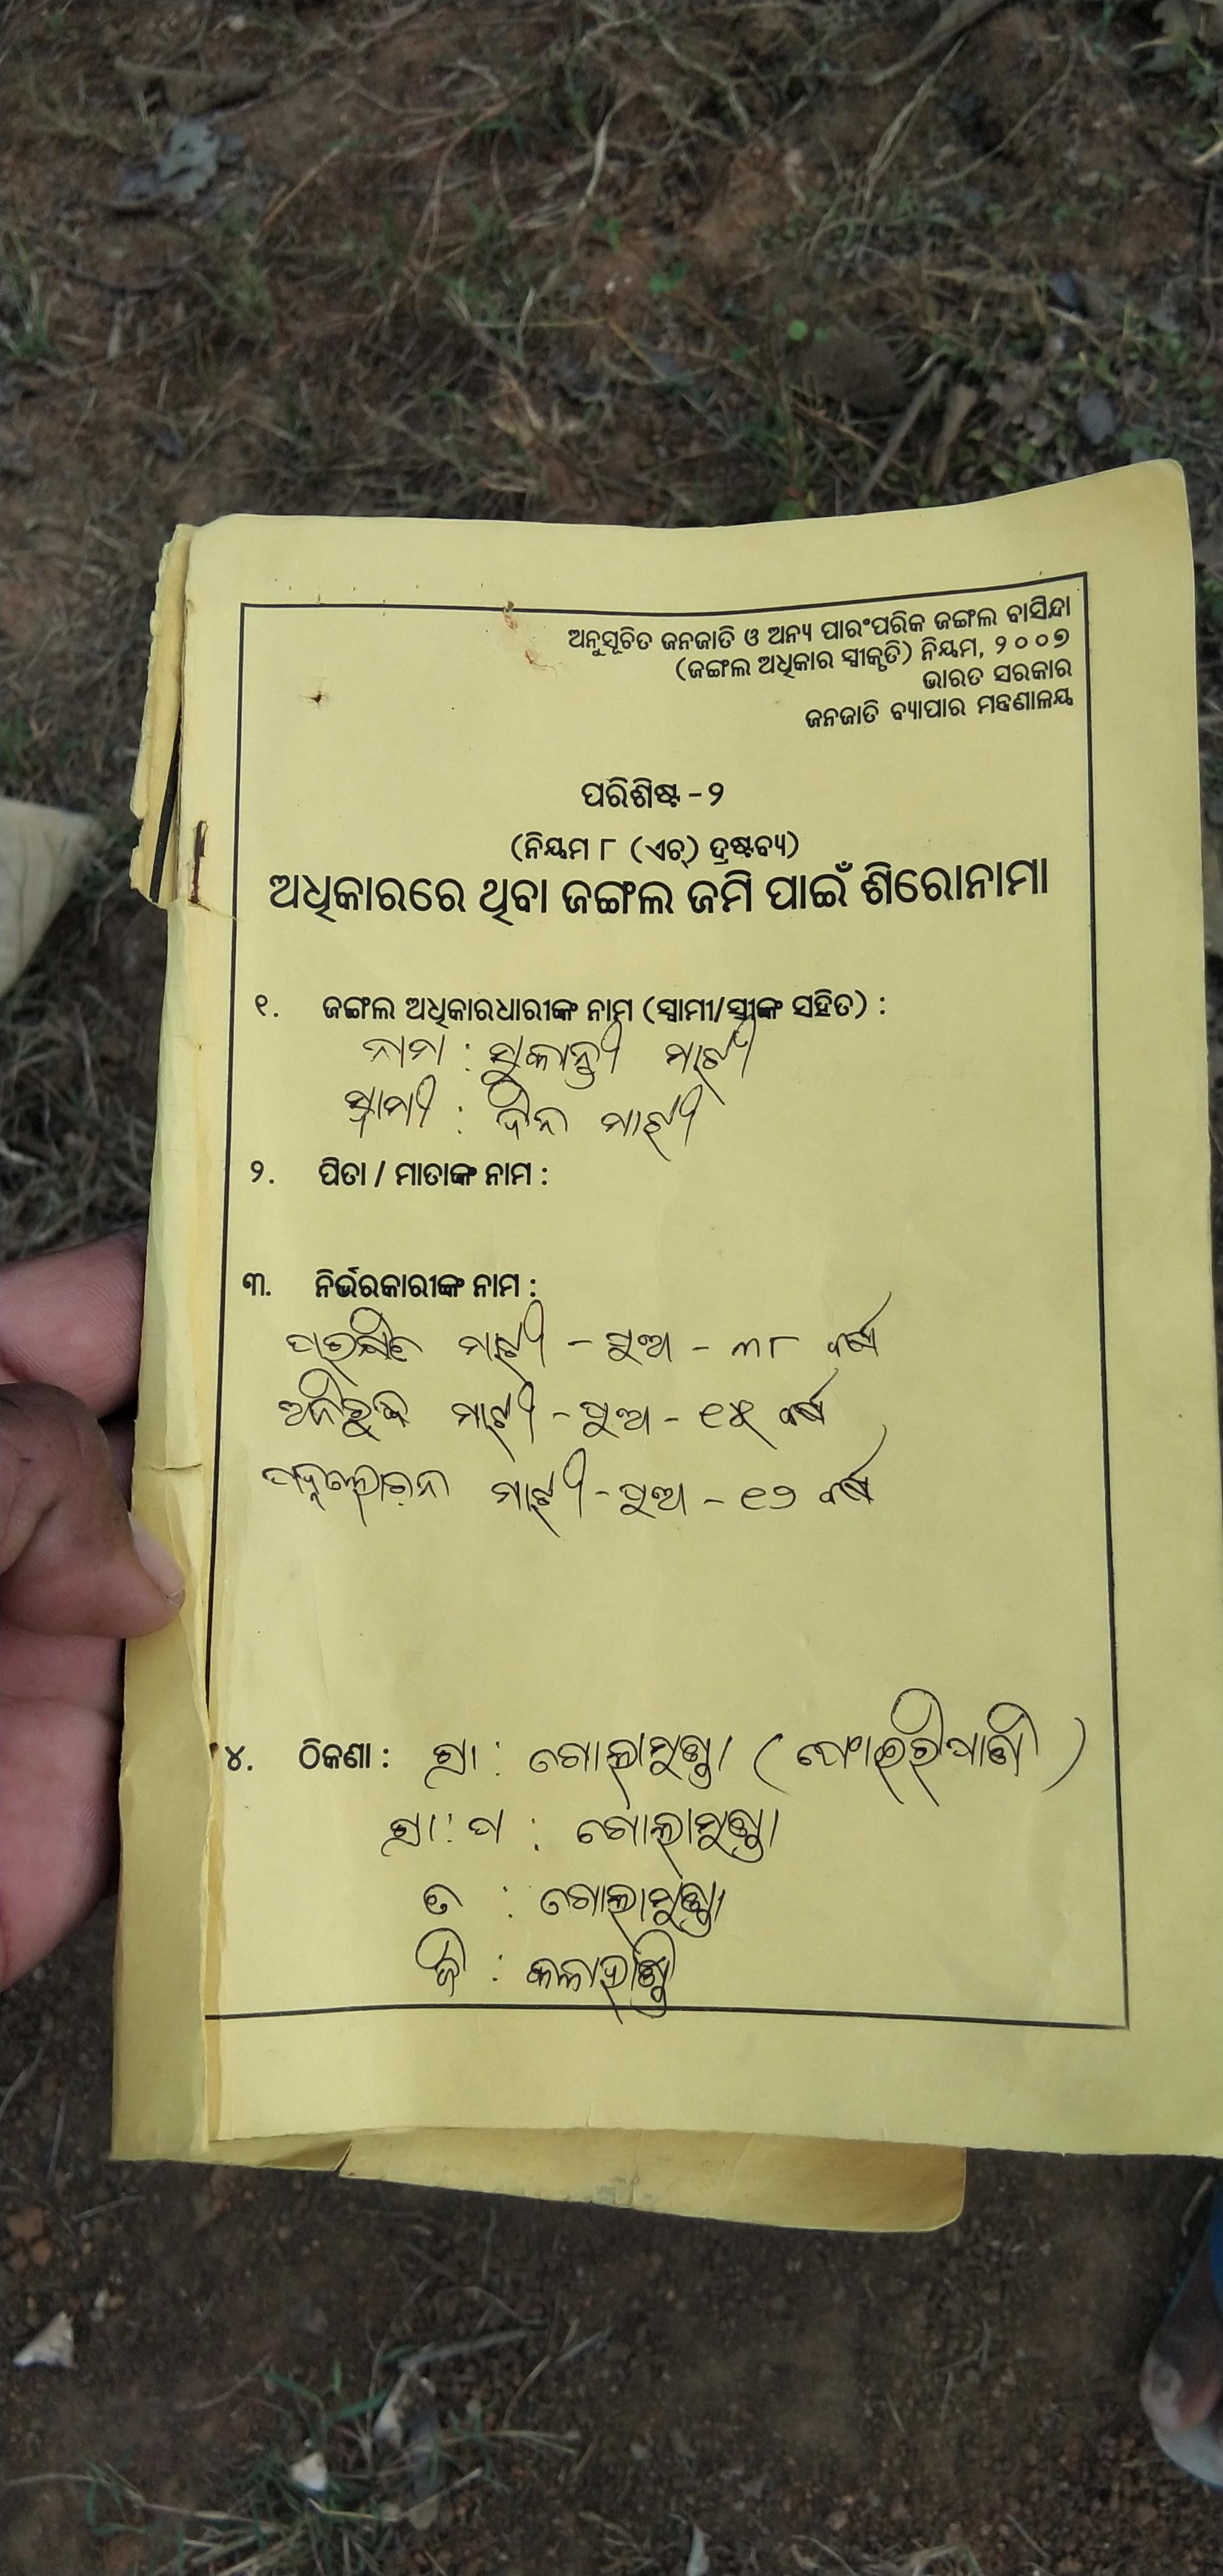 ଅନୁସୂଚିତ ଜନଜାତି ଓ ଅନ୍ୟ ପାରଂପରିକ ଜଙ୍ଗଲ ବାସିନ୍ଦା
(ଜଙ୍ଗଲ ଅଧିକାର ସ୍ୱୀକୃତି) ନିୟମ, ୨୦୦୭
ଭାରତ ସରକାର
ଜନଜାତି ବ୍ୟାପାର ମନ୍ତ୍ରଣାଳୟ
ପରିଶିଷ୍ଟ - ୨
(ନିୟମ ୮ (ଏଚ୍) ଦ୍ରଷ୍ଟବ୍ୟ)
ଅଧିକାରରେ ଥିବା ଜଙ୍ଗଲ ଜମି ପାଇଁ ଶିରୋନାମା
୧. ଜଙ୍ଗଲ ଅଧିକାରଧାରୀଙ୍କ ନାମ (ସ୍ୱାମୀ/ସ୍ତ୍ରୀଙ୍କ ସହିତ) :
ନାମ : ସୁକାନ୍ତୀ ମାଝୀ
ସ୍ୱାମୀ : ମାଝୀ
୨. ପିତା / ମାତାଙ୍କ ନାମ :
୩. ନିର୍ଭରକାରୀଙ୍କ ନାମ :
ମାଝୀ - ପୁଅ - ୩୮ ବର୍ଷ
ଅନିରୁଦ୍ଧ ମାଝୀ - ପୁଅ - ୧୫ ବର୍ଷ
ପଦ୍ମଲୋଚନ ମାଝୀ - ପୁଅ - ୧୨ ବର୍ଷ
୪. ଠିକଣା : ଗ୍ରା : ଗୋଲାମୁଣ୍ଡା
ଗ୍ରା : ପ : ଗୋଲାମୁଣ୍ଡା
ତ : ଗୋଲାମୁଣ୍ଡା
ଜି : କଳାହାଣ୍ଡି